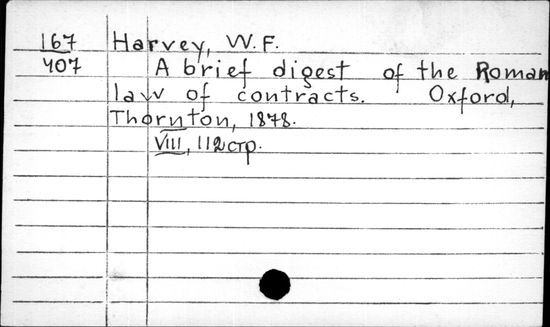 167 Harvey, W. F.
407 A brief digest of the Roman
law of contracts. Oxford,
Thornton, 1878.
VIII, 112 стр.